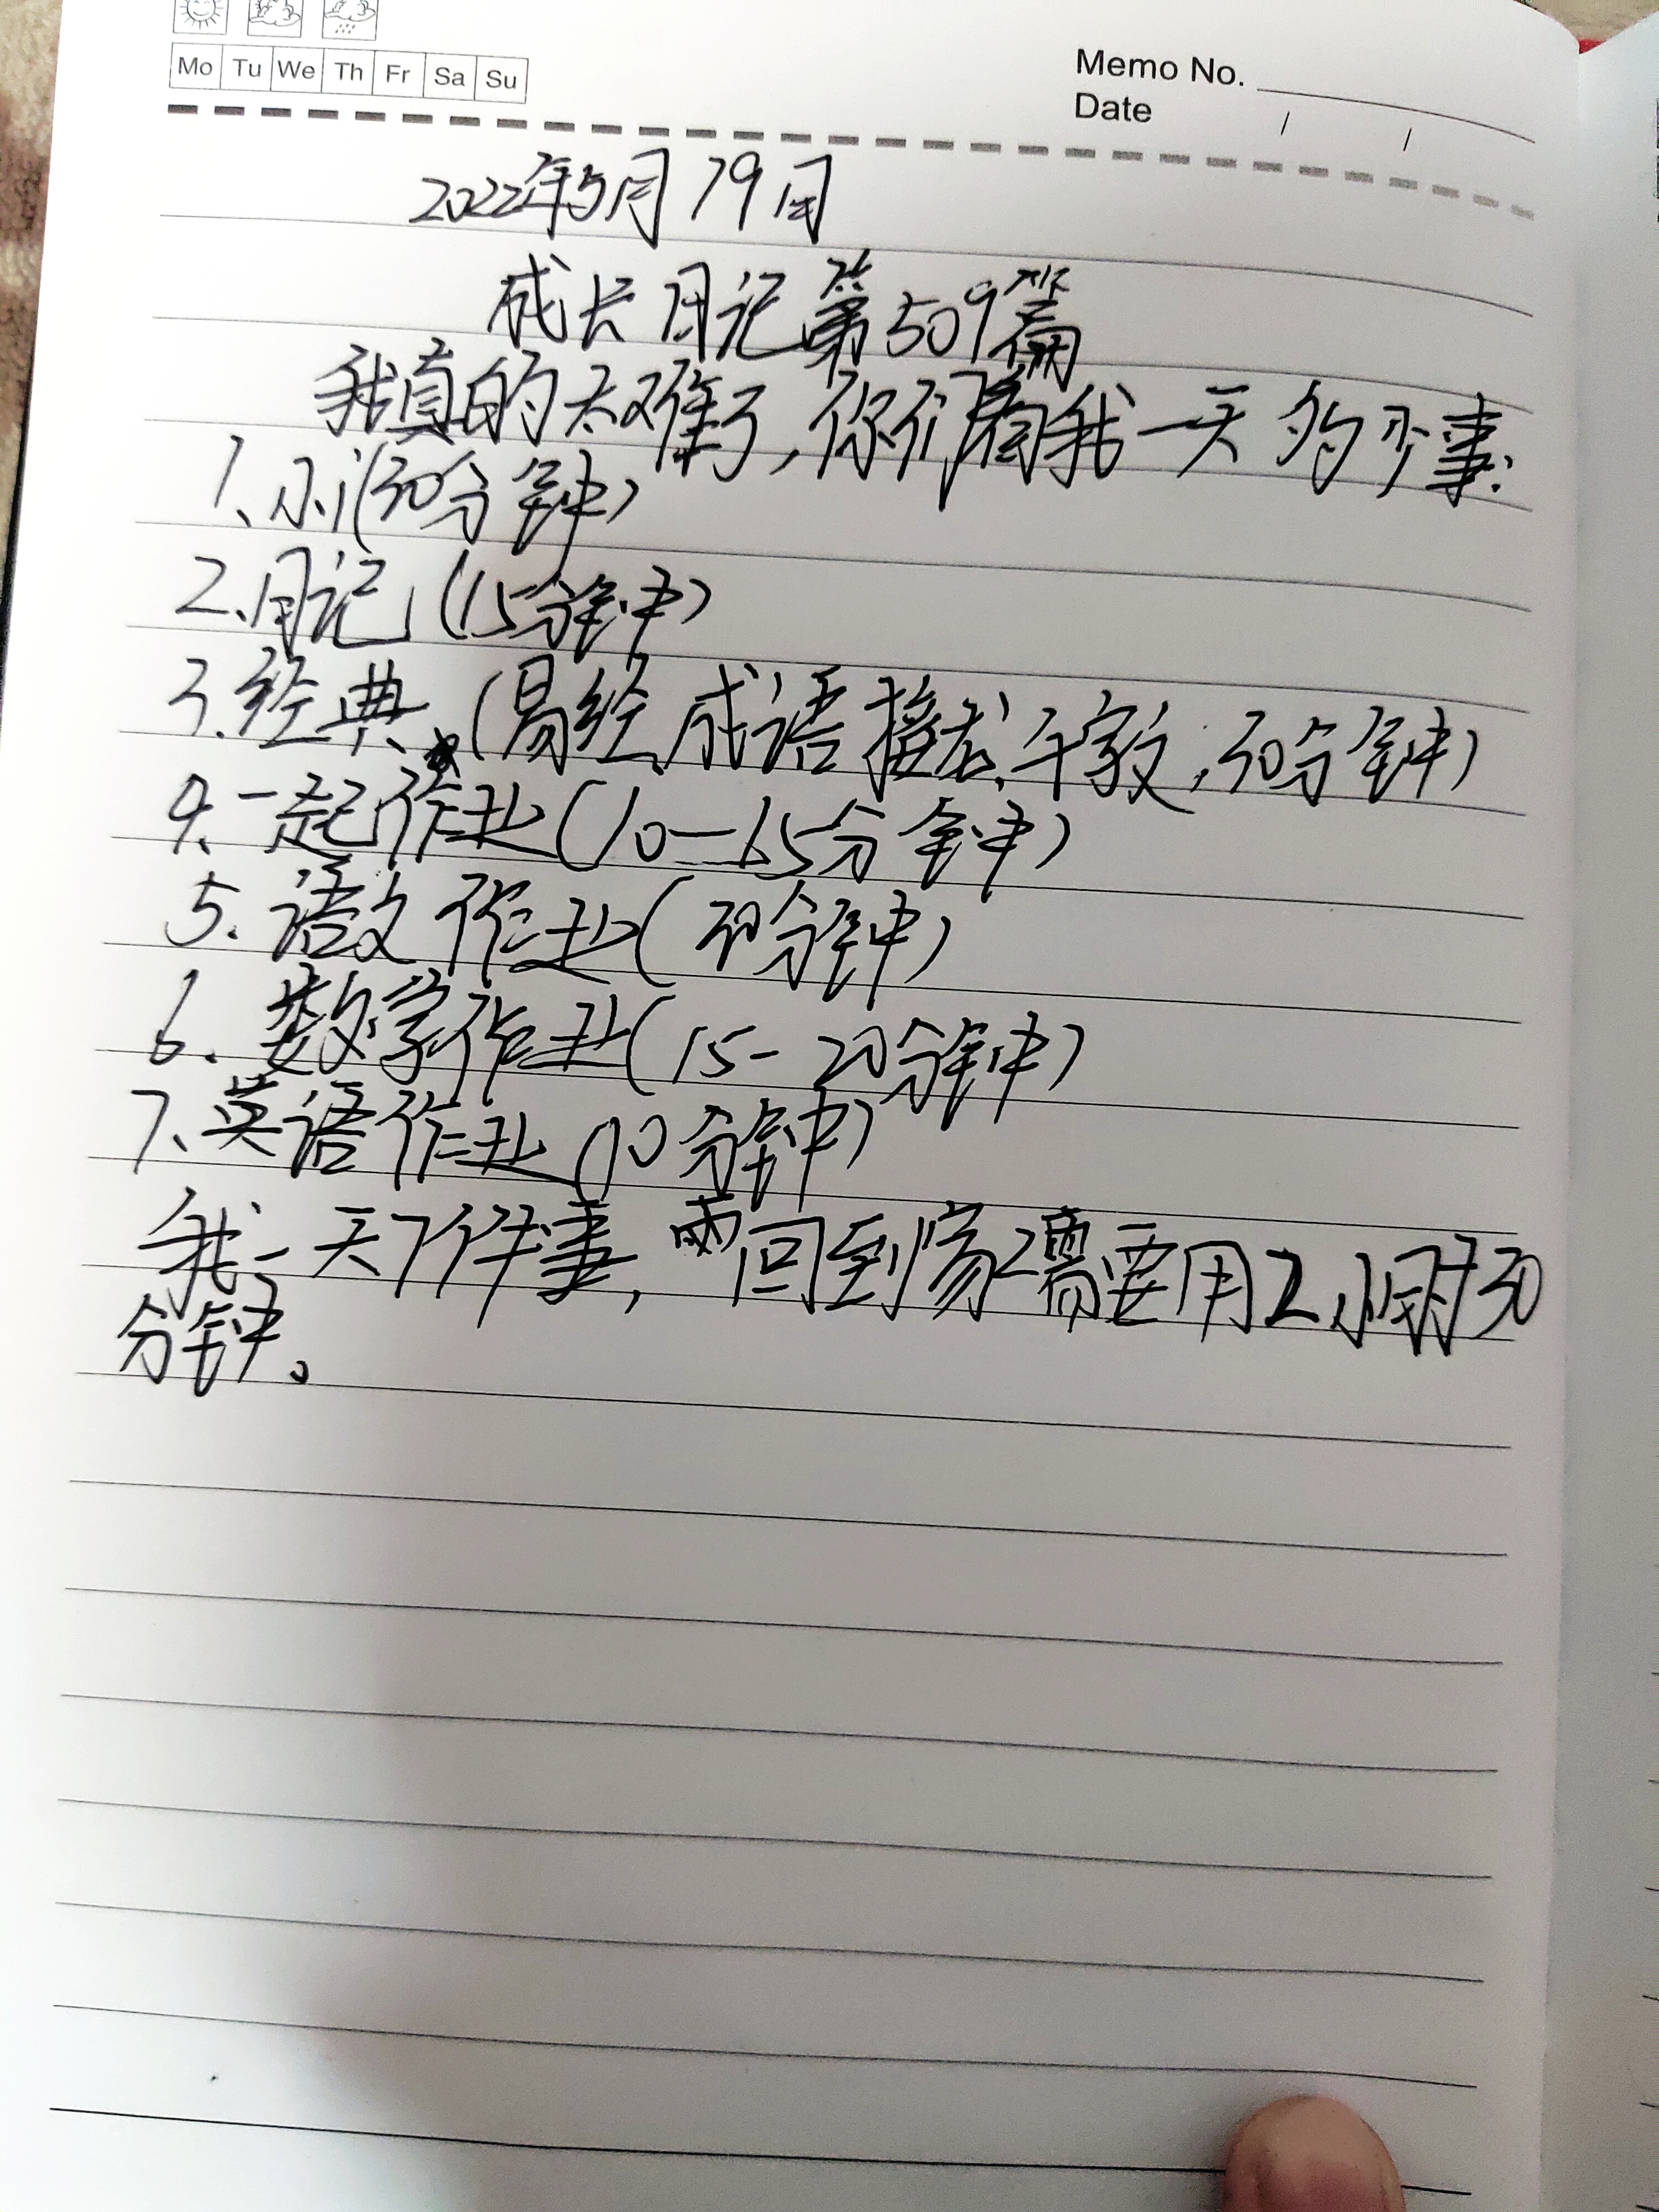 Mo Tu We Th Fr Sa Su
Memo No.
Date / /
2022年5月19日
成长日记第509篇
我真的太难了,你们看我一天多少事:
1、小(30分钟)
2、日记(15分钟)
3.经典、(易经、成语接龙、午家文,30分钟)
4.一起作业(10—15分钟)
5.语文作业(20分钟)
6.数学作业(15-20分钟)
7、英语作业(10分钟)
我一天7件事,回到家需要用2小时30
分钟。